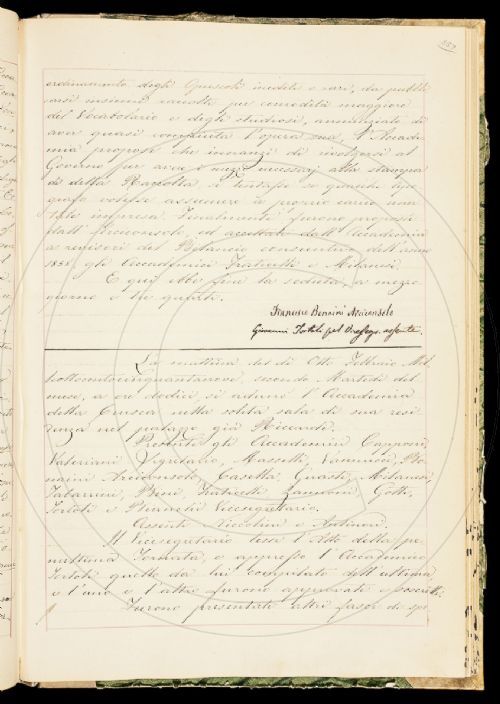 ordinamento degli Opuscoli inediti e rari, da pubbli
carsi insieme raccolti per comodità maggiore
del Vocabolario e degli studiosi, annunziato di
aver quasi compiuta l'opera sua, l'Accade
mia propose che innanzi di rivolgersi al
Governo per avere i mezzi necessarj alla stampa
di detta Raccolta, si tentasse se qualche tipo
grafo volesse assumere a proprio carico una
tale impresa. Finalmente furono proposti
dall'Arciconsolo, ed accettati dall'Accademia
a revisori del Bilancio consuntivo dell'anno
1858, gli Accademici Fraticelli e Milanesi.
E qui ebbe fine la seduta, a mezzo
giorno e tre quarti.
Francesco Bonaini Arciconsolo
Giovanni Tortoli pel Vicesegr. assente.
La mattina del dì Otto Febbraio Mil
leottocentocinquantanove, secondo Martedì del
mese, a ore dodici, si adunò l'Accademia
della Crusca nella solita sala di sua resi
denza nel palazzo già Riccardi.
Presenti gli Accademici Capponi,
Valeriani Segretario, Massetti, Vannucci, Bo
naini Arciconsolo, Casella, Guasti, Milanesi,
Tabarrini, Bini, Fraticelli, Zannoni, Gotti,
Tortoli e Bianchi Vicesegretario.
Assenti Niccolini e Antinori.
Il Vicesegretario lesse l'Atto della pe
nultima Tornata, e appresso l'Accademico
Tortoli quello da lui compilato dell'ultima
e l'uno e l'altro furono approvati e soscritti.
Furono presentati altri fasci di spo